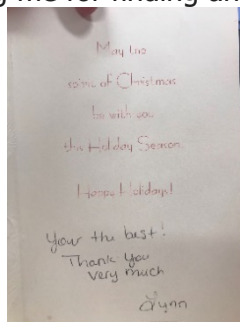 g me for finding an
May the
spirit of Christmas
be with you
this Holiday Season.
Happy Holidays!
Your the best!
Thank you
very much
Lynn